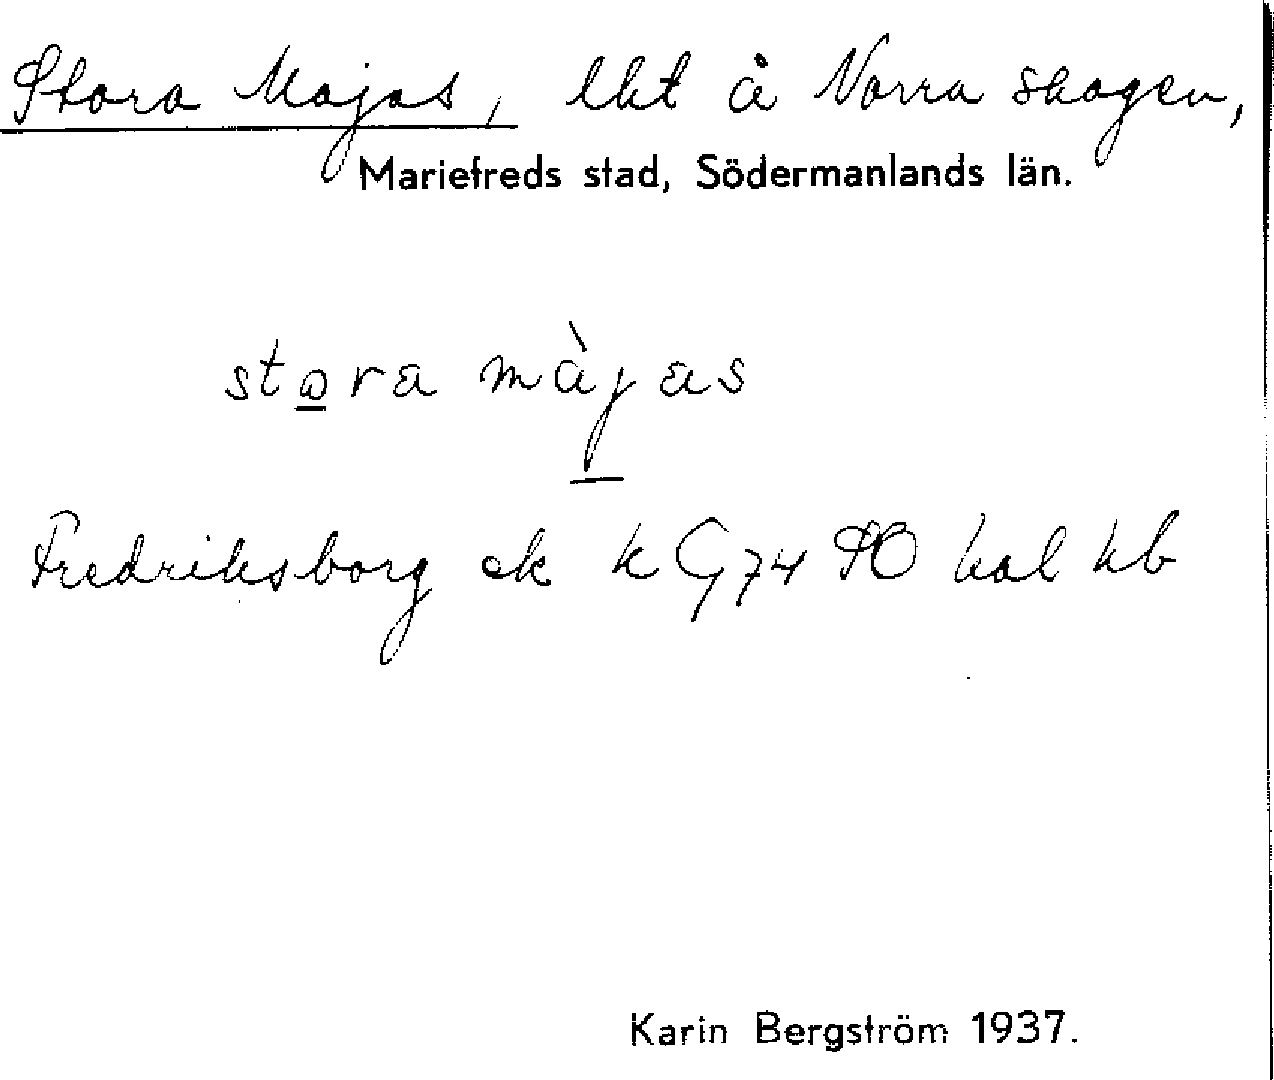 Stora Majas, lht å Norra skogen,
Mariefreds stad, Södermanlands län.
stora màjas
Fredriksborg ek k G74 PO kal kb
Karin Bergström 1937.